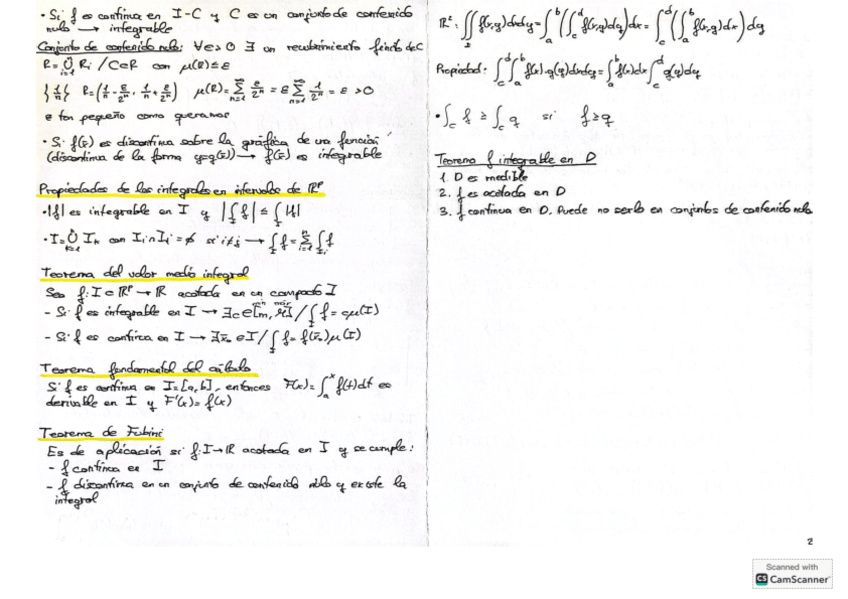 · Si f es continua en I-C y C es un conjunto de contenido
nulo → integrable
Conjunto de contenido nulo: ∀ε>0 ∃ un recubrimiento finito de C
R=∪Ri / C∈R con μ(R)≤ε
{1/n} R=(1/n - ε/2ⁿ, 1/n + ε/2ⁿ) μ(R)=∑ ε/2ⁿ = ε∑ 1/2ⁿ = ε >0
ε tan pequeño como queramos
· Si f(x̄) es discontinua sobre la gráfica de una función
(discontinua de la forma y=g(x̄)) → f(x̄) es integrable
Propiedades de las integrales en intervalos de ℝᵖ
· |f| es integrable en I y |∫f| ≤ ∫|f|
· I=∪Iₖ con Ii∩Ij=∅ si i≠j → ∫f=∑∫f
Teorema del valor medio integral
Sea f: I⊂ℝᵖ→ℝ acotada en un compacto I
- Si f es integrable en I → ∃c∈[m, M] / ∫f=cμ(I)
- Si f es continua en I → ∃x̄₀∈I / ∫f=f(x̄₀)μ(I)
Teorema fundamental del cálculo
Si f es continua en I=[a,b], entonces F(x)=∫ₐˣ f(t)dt es
derivable en I y F'(x)=f(x)
Teorema de Fubini
Es de aplicación si f: I→ℝ acotada en I y se cumple:
- f continua en I
- f discontinua en un conjunto de contenido nulo y existe la
integral
ℝ²: ∬f(x,y)dxdy=∫ₐᵇ(∫f(x,y)dy)dx=∫(∫ₐᵇ f(x,y)dx)dy
Propiedad: ∫∫ₐᵇ f(x)·g(y)dxdy=∫ₐᵇ f(x)dx∫g(y)dy
· ∫f ≥ ∫g si f≥g
Teorema f integrable en D
1. D es medible
2. f es acotada en D
3. f continua en D. Puede no serlo en conjuntos de contenido nulo
2
Scanned with
CS CamScanner